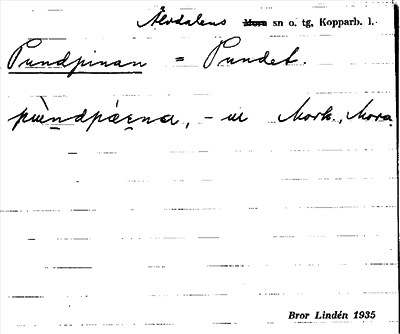 Älvdalens Mora sn o. tg, Kopparb. l.
Pundpinan = Pundet.
pùndpáɛna, - ɯ Mork., Mora
Bror Lindén 1935